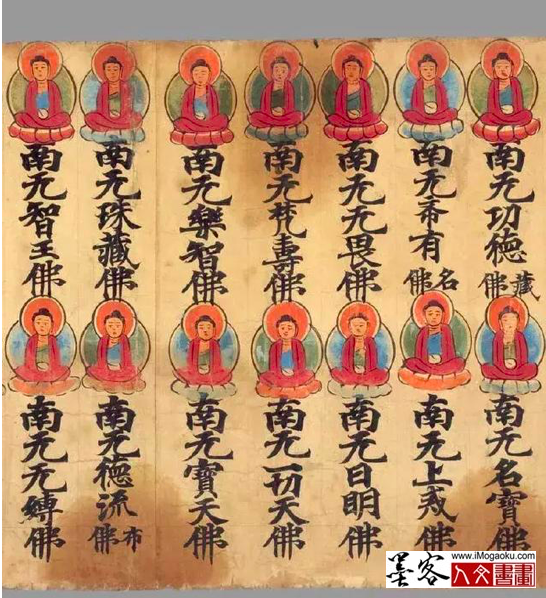 南无功德藏佛
南无希有名佛
南无无畏佛
南无梵壽佛
南无樂智佛
南无珠藏佛
南无智王佛
南无名寶佛
南无上戒佛
南无日明佛
南无一切天佛
南无寶天佛
南无德流布佛
南无无縛佛
墨客
www.iMogaoku.com
人文書畫